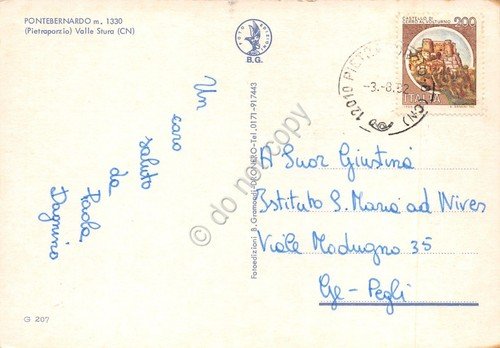 PONTEBERNARDO m. 1330
(Pietraporzio) Valle Stura (CN)
FOTO EDIZIONI
B.G.
CASTELLO DI
CERRO AL VOLTURNO
200
ITALIA
12010 PIET (CN)
-3.-8.82
Un caro
saluto
da
Paola
Dagnino
Fotoedizioni B. Gramaglia-DRONERO-Tel. 0171-917443
A Suor Giustina
Istituto S. Maria ad Nives
Viale Modugno 35
Ge-Pegli
G 207
© do not copy